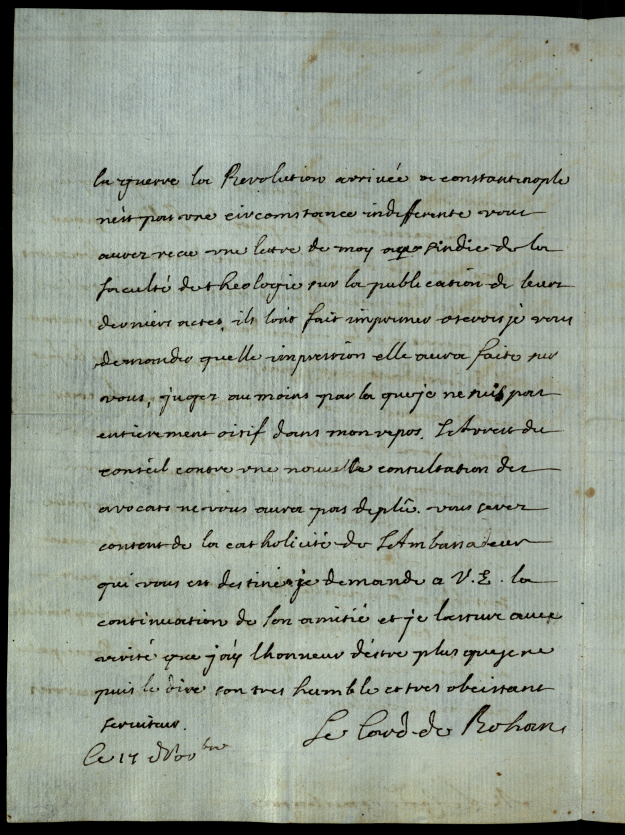 la guerre la Revolution arrivée a constantinople
nest pas une circomstance indifferente vous
aurez recu une lettre de moy au sindic de la
faculté de theologie sur la publication de leurs
derniers actes, ils font fait imprimer oserois je vous
demander quelle impression elle aura faite sur
vous, jugez au moins par la que je ne suis pas
entierement oisif dans mon repos. LArrest du
conseil contre une nouvelle consultation des
avocats ne vous aura pas deplû. vous serez
content de la catholicité de LAmbassadeur
qui vous est destiné je demande a V.E. la
continuation de son amitié et je lassure avec
verité que jay lhonneur déstre plus que je ne
puis le dire son tres humble et tres obeissant
serviteur.
Le Card de Rohan
le 17 Nov bre